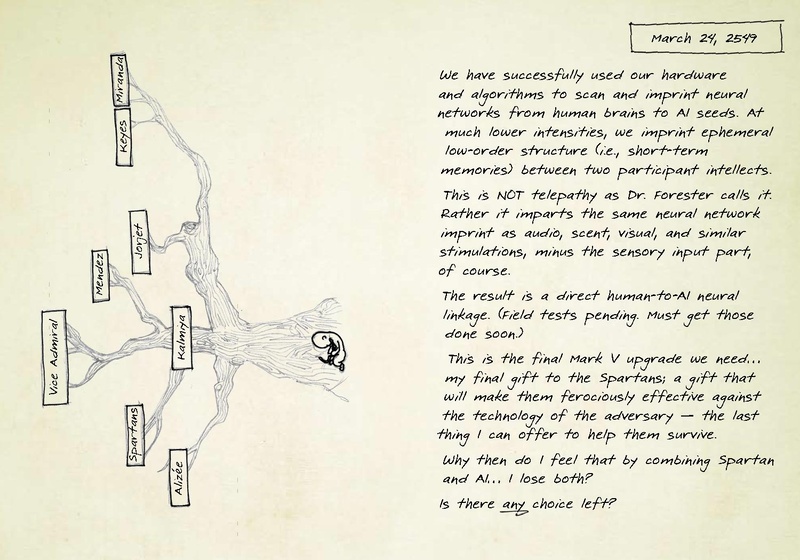 Miranda
Keyes
Jorjet
Mendez
Kalmiya
Vice Admiral
Spartans
Alizée
March 24, 2549
We have successfully used our hardware
and algorithms to scan and imprint neural
networks from human brains to AI seeds. At
much lower intensities, we imprint ephemeral
low-order structure (i.e., short-term
memories) between two participant intellects.
This is NOT telepathy as Dr. Forester calls it.
Rather it imparts the same neural network
imprint as audio, scent, visual, and similar
stimulations, minus the sensory input part,
of course.
The result is a direct human-to-AI neural
linkage. (Field tests pending. Must get those
done soon.)
This is the final Mark V upgrade we need...
my final gift to the Spartans; a gift that
will make them ferociously effective against
the technology of the adversary — the last
thing I can offer to help them survive.
Why then do I feel that by combining Spartan
and AI... I lose both?
Is there any choice left?